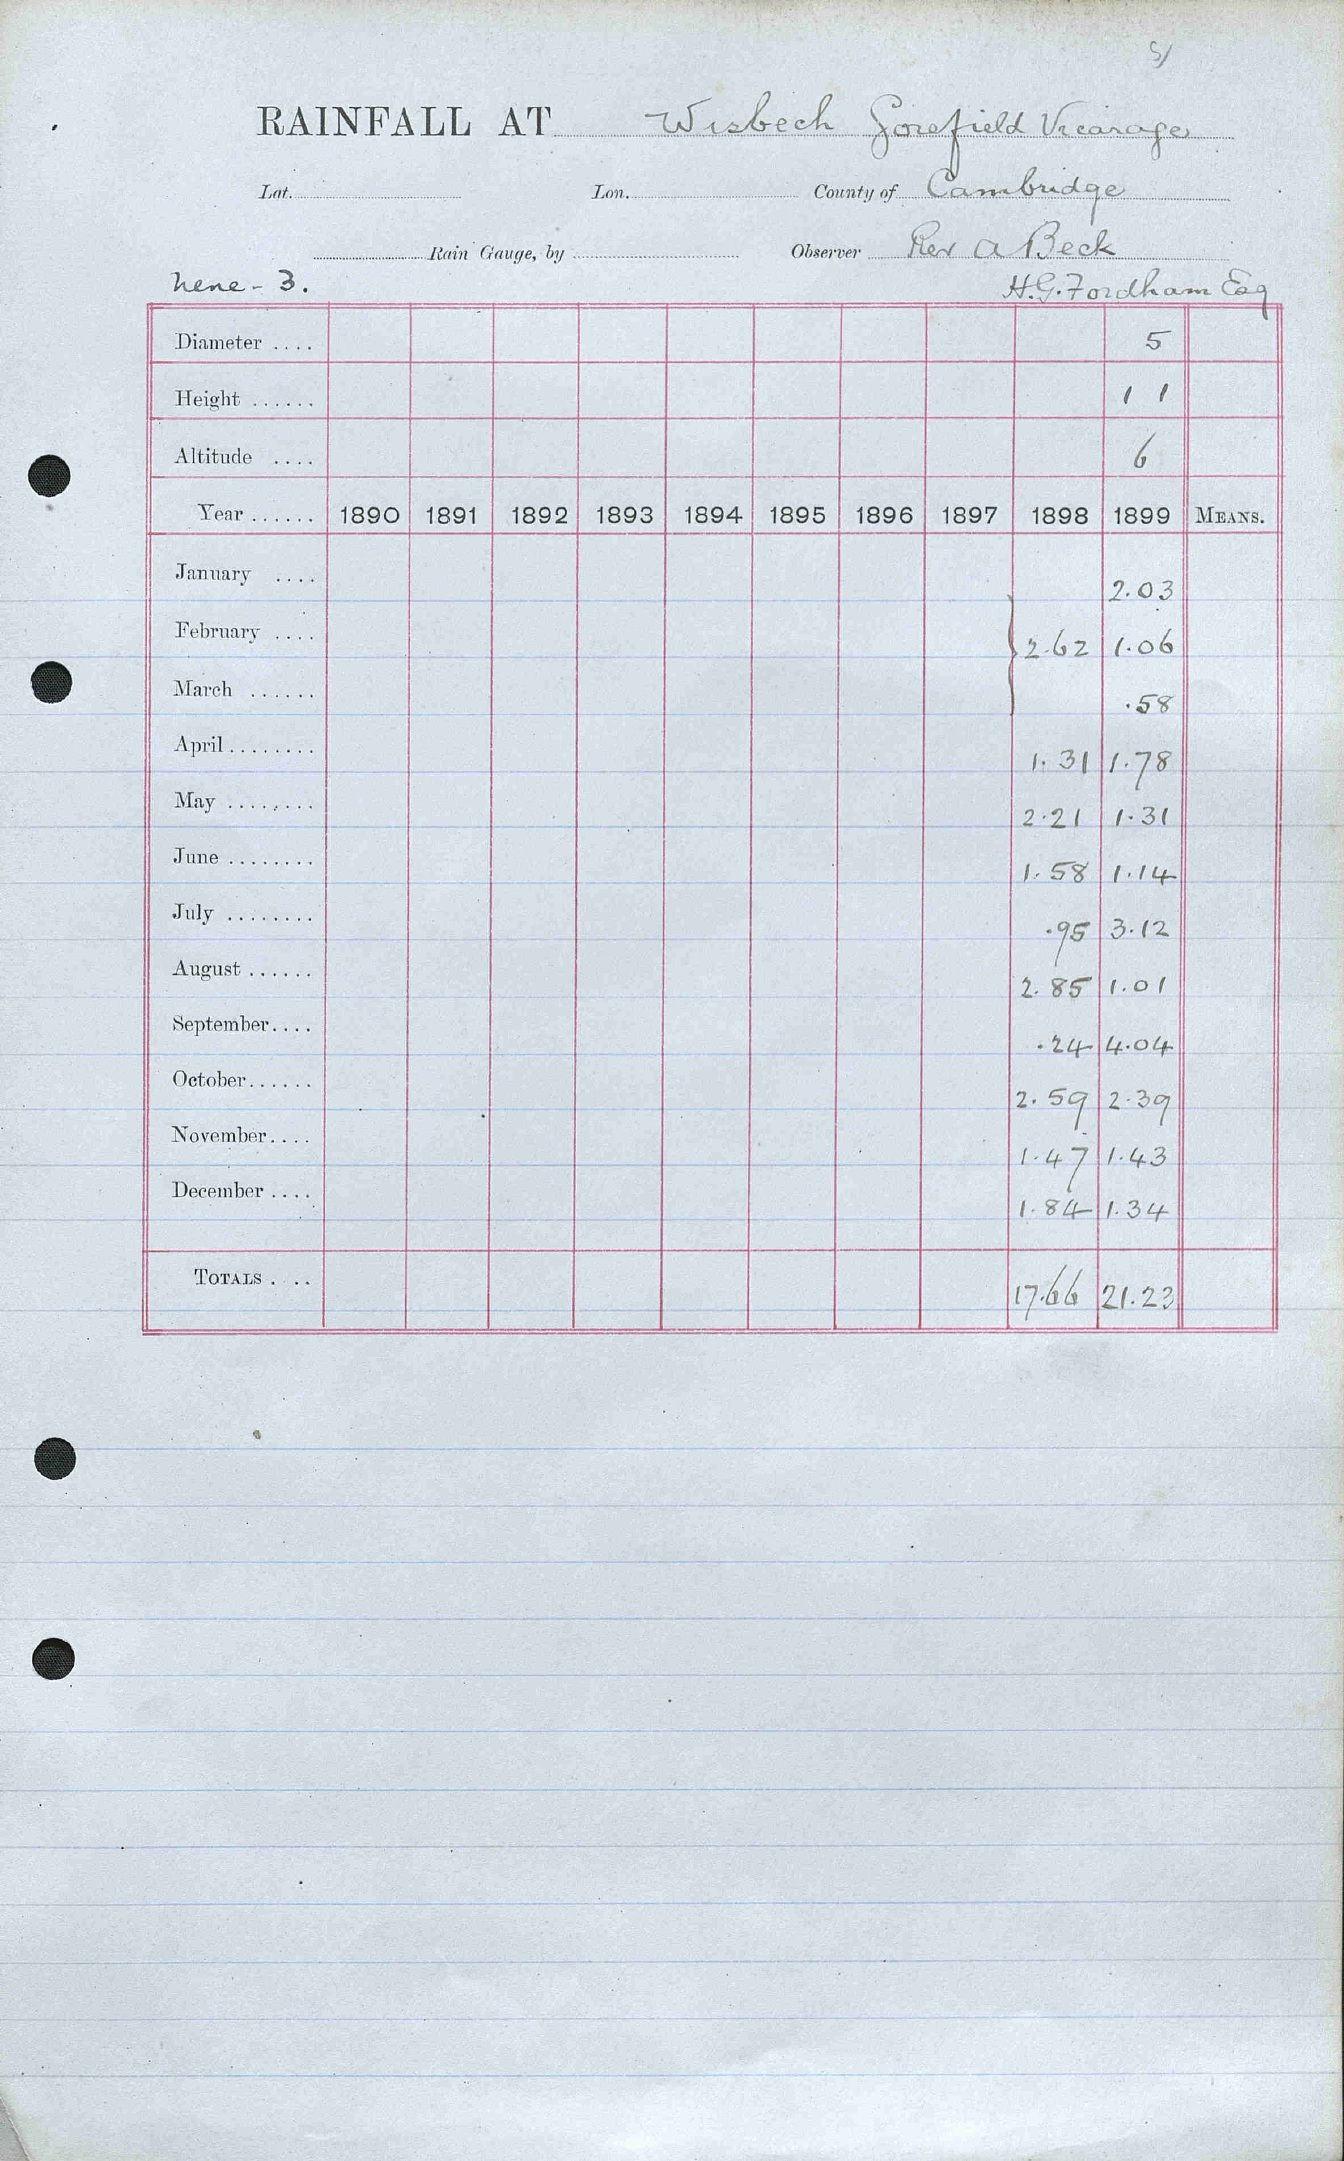 5/
RAINFALL AT Wisbech Gorefield Vicarage
Lat. Lon. County of Cambridge
Rain Gauge, by Observer Rev A Beck
Nene - 3. H.G. Fordham Esq
Diameter .... 5
Height ...... 1 1
Altitude .... 6
Year ...... 1890 1891 1892 1893 1894 1895 1896 1897 1898 1899 MEANS.
January .... 2.03
February .... } 2.62 1.06
March ...... .58
April ........ 1.31 1.78
May ........ 2.21 1.31
June ........ 1.58 1.14
July ........ .95 3.12
August ...... 2.85 1.01
September.... .24 4.04
October...... 2.59 2.39
November.... 1.47 1.43
December .... 1.84 1.34
TOTALS . .. 17.66 21.23